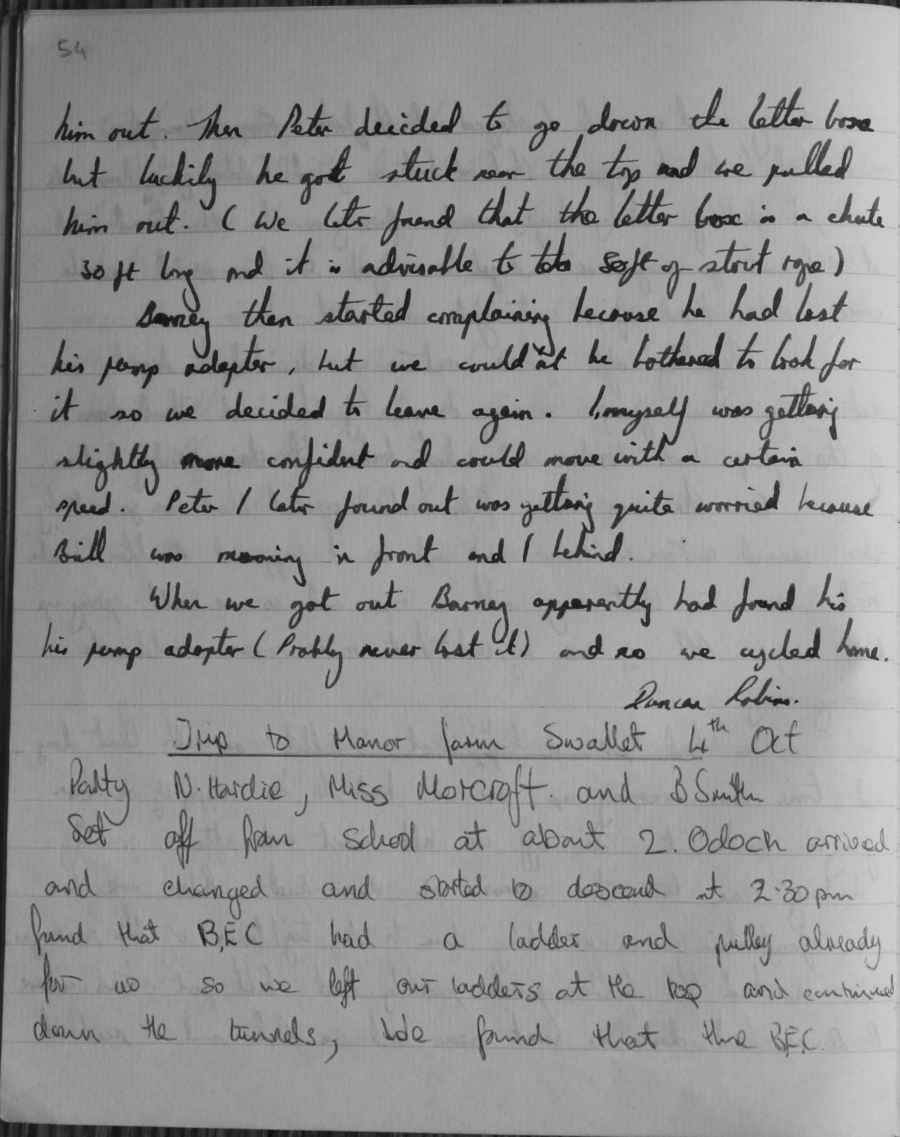 54
him out. Then Peter decided to go down the letter boxe
but luckily he got stuck near the top and we pulled
him out. (We latr found that the letter boxe is a chute
30 ft long and it is advisable to 50ft of stout rope)
Barney then started complaining because he had lost
his pump adapter, but we could'nt be bothered to look for
it so we decided to leave again. I, myself was getting
slightly more confident and could move with a certain
speed. Peter I later found out was getting quite worried because
Bill was moaning in front and I behind.
When we got out Barney apparently had found his
his pump adapter (Probly never lost it) and so we cycled home.
Duncan Robins.
Trip to Manor farm Swallet 4th Oct
Party N. Hardie, Miss Morcroft. and B Smith
Set off from school at about 2. Oclock arrived
and changed and started to descend at 2.30 pm
found that B.E.C had a ladder and pulley already
for us so we left our ladders at the top and continued
down the tunnels, We found that the B.E.C.